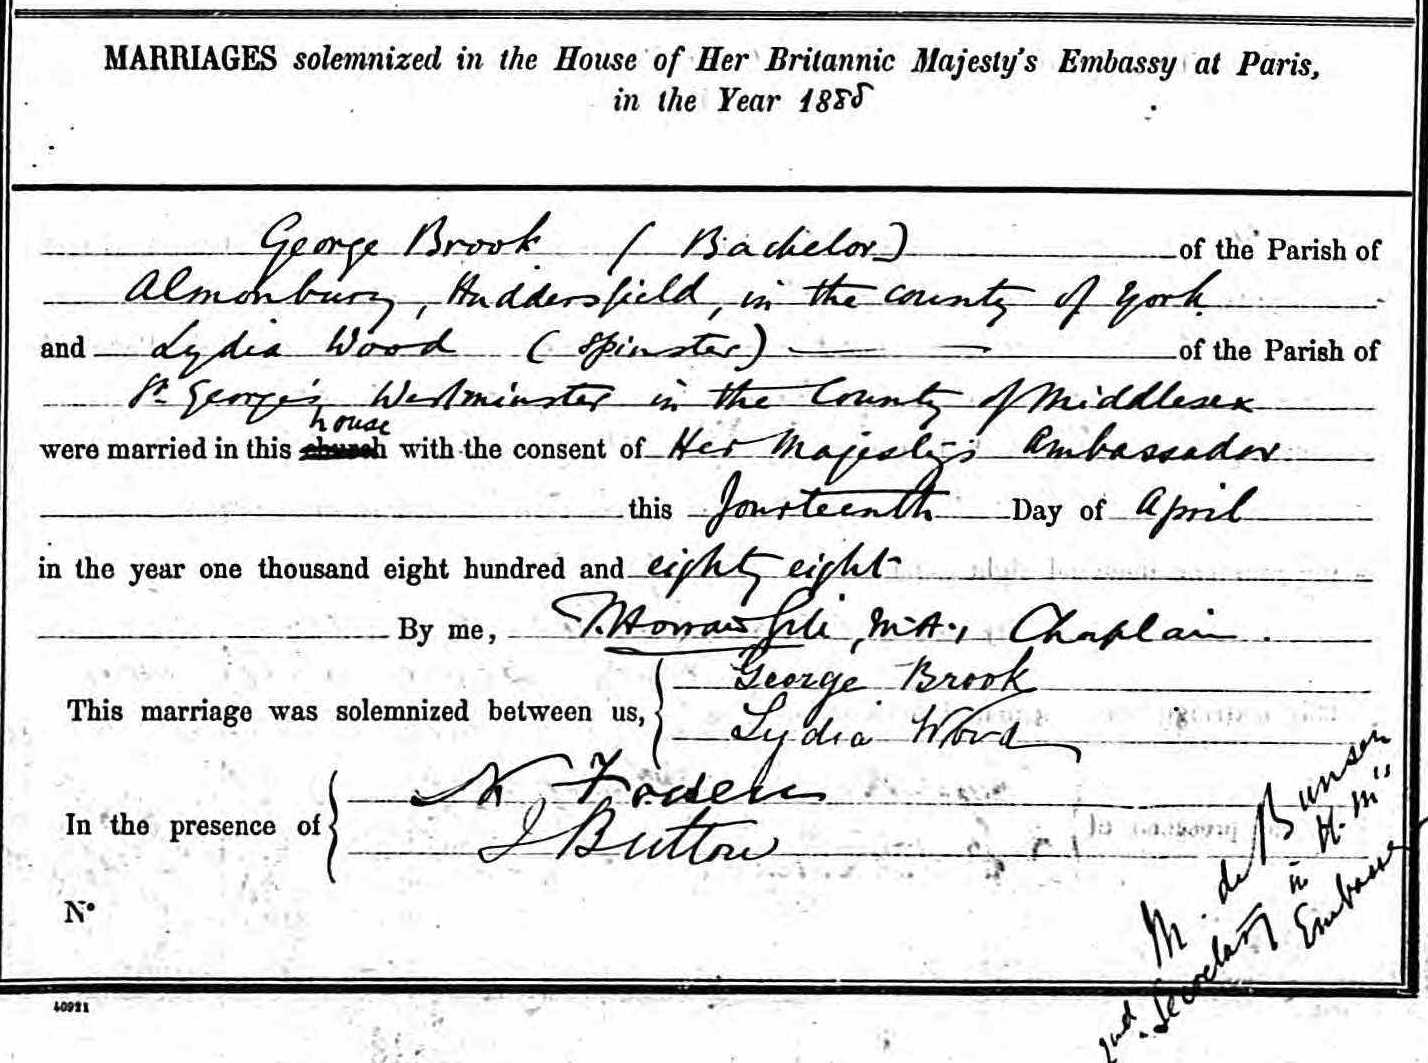 MARRIAGES solemnized in the House of Her Britannic Majesty's Embassy at Paris,
in the Year 1888
George Brook (Bachelor) of the Parish of
Almonbury, Huddersfield, in the county of York
and Lydia Wood (Spinster) of the Parish of
St. George's Westminster in the County of Middlesex
house
were married in this church with the consent of Her Majesty's Ambassador
this fourteenth Day of April
in the year one thousand eight hundred and eighty eight
By me, M.A., Chaplain.
This marriage was solemnized between us,
George Brook
Lydia Wood
In the presence of
J Button
M. de Bunsen
2nd. Secretary in H.M's
Embassy
No
40921